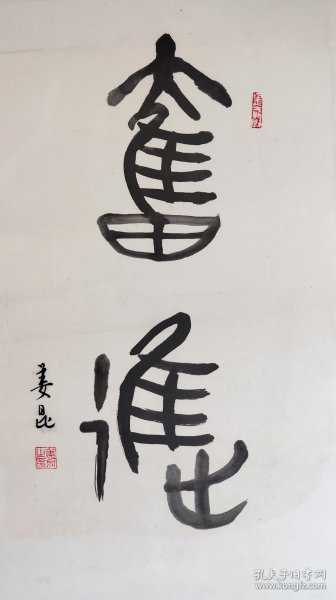 奮進
娄昆
孔夫子旧书网